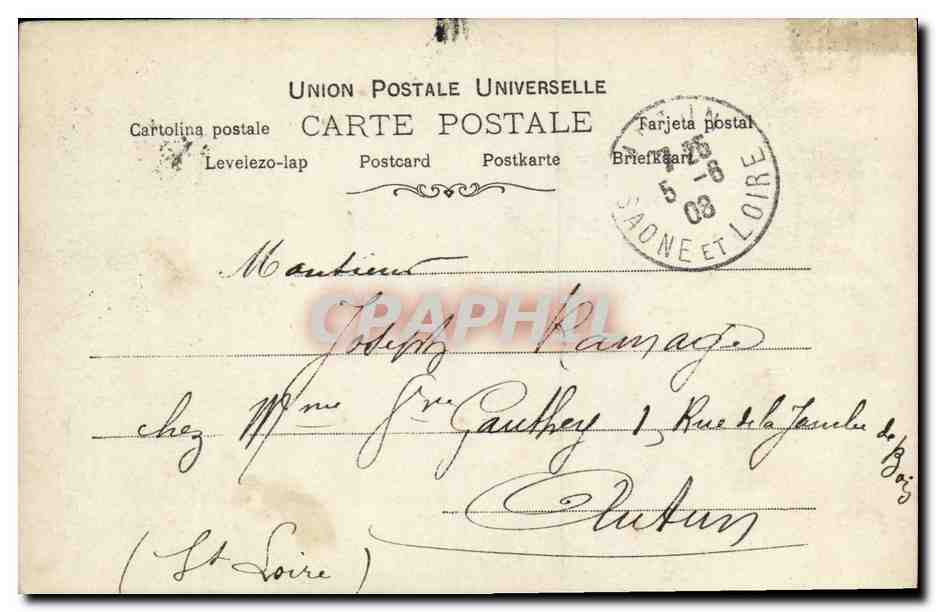 UNION POSTALE UNIVERSELLE
Cartolina postale CARTE POSTALE Tarjeta postal
Levelezo-lap Postcard Postkarte Briefkaart
7 25
5 -6
08
SAONE ET LOIRE
Monsieur
CPAPHIL
Joseph Ramage
chez Mme Gve Gauthey 1, Rue de la Jambe de Bois
Autun
(St Loire)